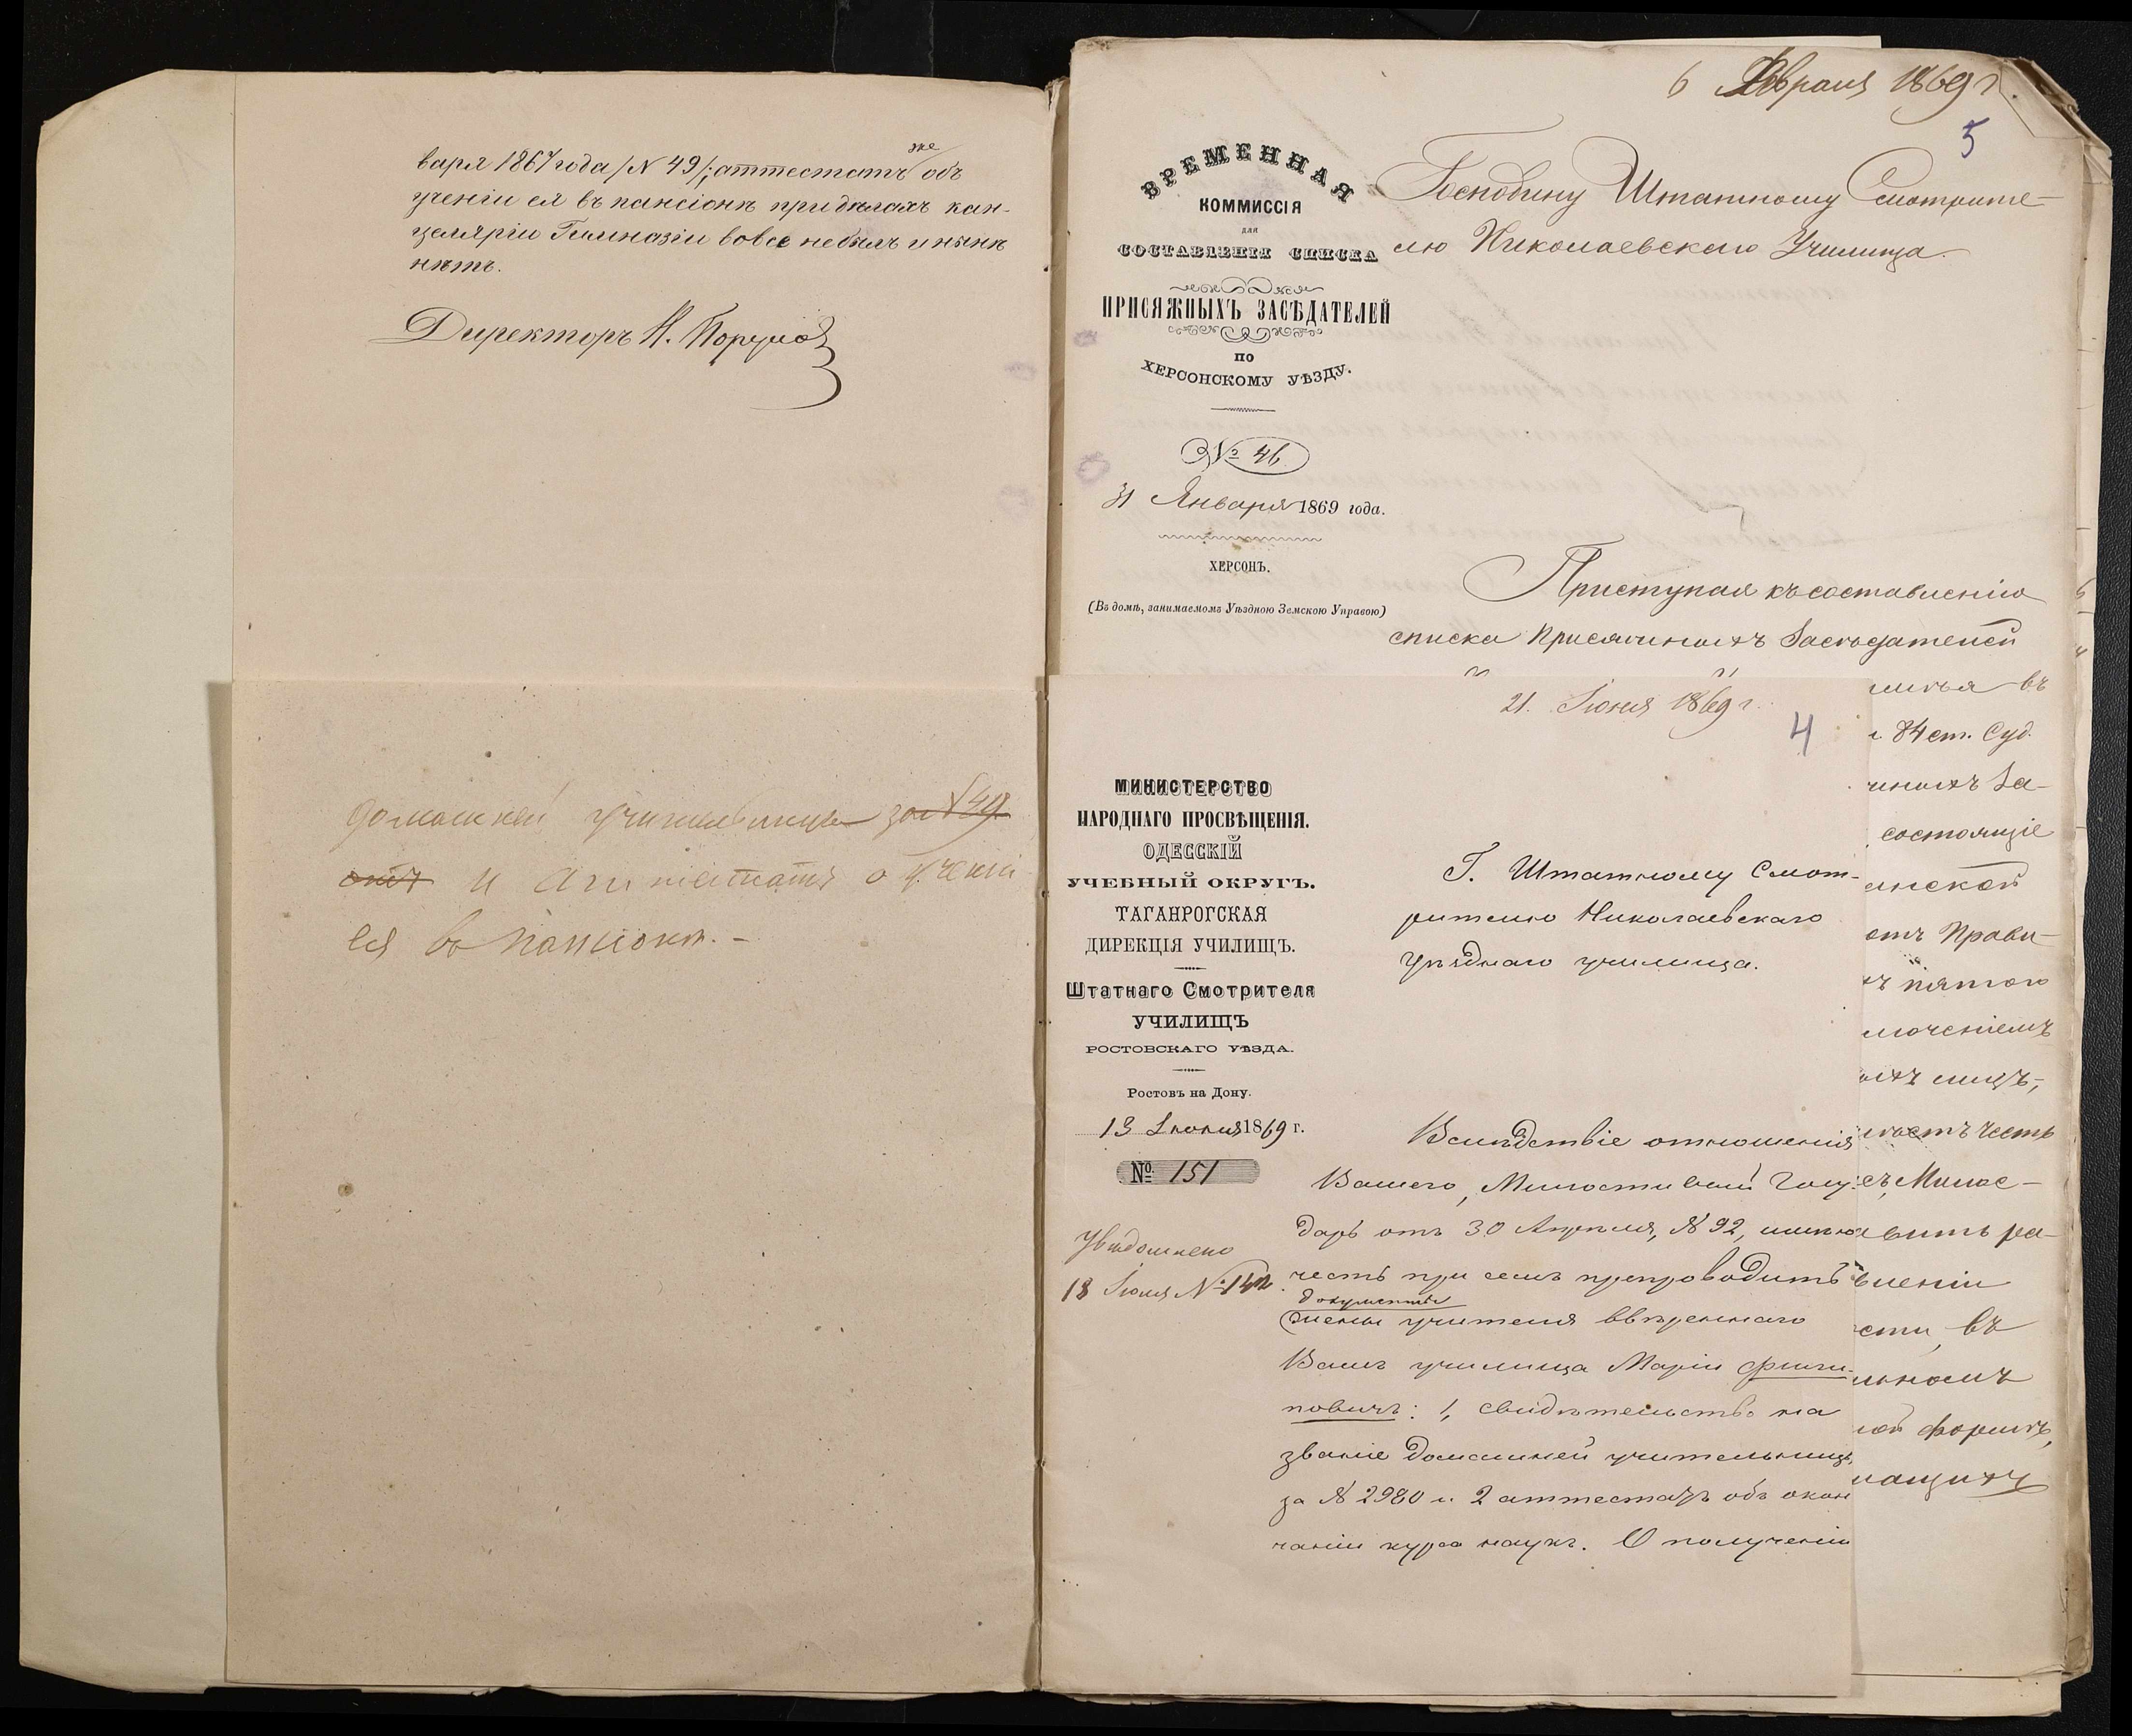 варя 1867 года /N 49/; аттестатъ же объ
ученіи ея въ пансіонѣ при дѣлахъ кан-
целяріи Гимназіи вовсе не былъ и нынѣ
нѣтъ.
Директоръ Н.
домашней учительницы за N 49
и аттестатъ о ученіи
ея въ пансіонѣ. –
6 Февраля 1869 г.
5
ВРЕМЕННАЯ
КОММИССІЯ
ДЛЯ
СОСТАВЛЕНІЯ СПИСКА
ПРИСЯЖНЫХЪ ЗАСѢДАТЕЛЕЙ
ПО
ХЕРСОНСКОМУ УѢЗДУ.
№ 46
31 Января 1869 года.
ХЕРСОНЪ.
(Въ домѣ, занимаемомъ Уѣздною Земскою Управою)
Господину Штатному Смотрите-
лю Николаевскаго Училища.
Приступая къ составленію
списка Присяжныхъ Засѣдателей
въ
84 ст. Суд.
За-
состоящіе
Прави-
пятою
лицъ,
честь
Милос-
ра-
въ
формѣ,
21. Іюня 1869 г.
4
МИНИСТЕРСТВО
НАРОДНАГО ПРОСВѢЩЕНІЯ.
ОДЕССКІЙ
УЧЕБНЫЙ ОКРУГЪ.
ТАГАНРОГСКАЯ
ДИРЕКЦІЯ УЧИЛИЩЪ.
Штатнаго Смотрителя
УЧИЛИЩЪ
РОСТОВСКАГО УѢЗДА.
Ростовъ на Дону.
13 Іюня 1869 г.
№ 151
Увѣдомлено
18 Іюля №
Г. Штатному Смот-
рителю Николаевскаго
Уѣзднаго училища.
Вслѣдствіе отношенія
Вашего, Милостивый Госу-
дарь отъ 30 Апрѣля, № 92, имѣю
честь при семъ препроводить
документы
жены учителя ввѣреннаго
Вамъ училища Маріи Филип-
повичъ: 1, свидѣтельство на
званіе домашней учительницы
за № 2980 и 2 аттестатъ объ окон
чаніи курса наукъ. О полученіи